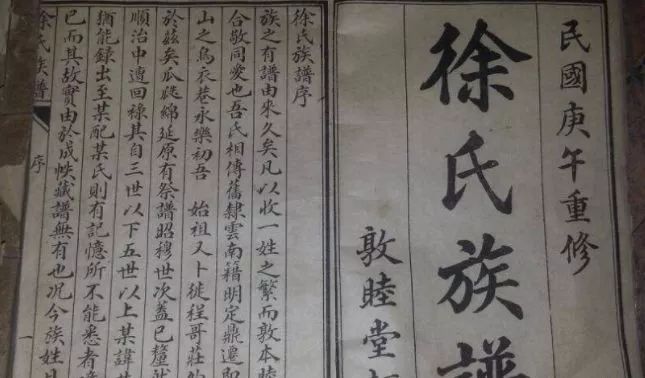 民國庚午重修
徐氏族譜
敦睦堂
徐氏族譜序
族之有譜由來久矣凡以收一姓之繁而敦本睦
合敬同愛也吾氏相傳舊隸雲南籍明定鼎遷即
山之烏衣巷永樂初吾 始祖又卜徙程哥莊
於茲矣瓜瓞綿延原有祭譜昭穆世次蓋已釐然
順治中遭回祿其自三世以下五世以上某諱某
猶能錄出至某配某氏則有記憶所不能悉者
已而其故實由於成帙藏譜無有也况今族姓
徐氏族譜
序
一